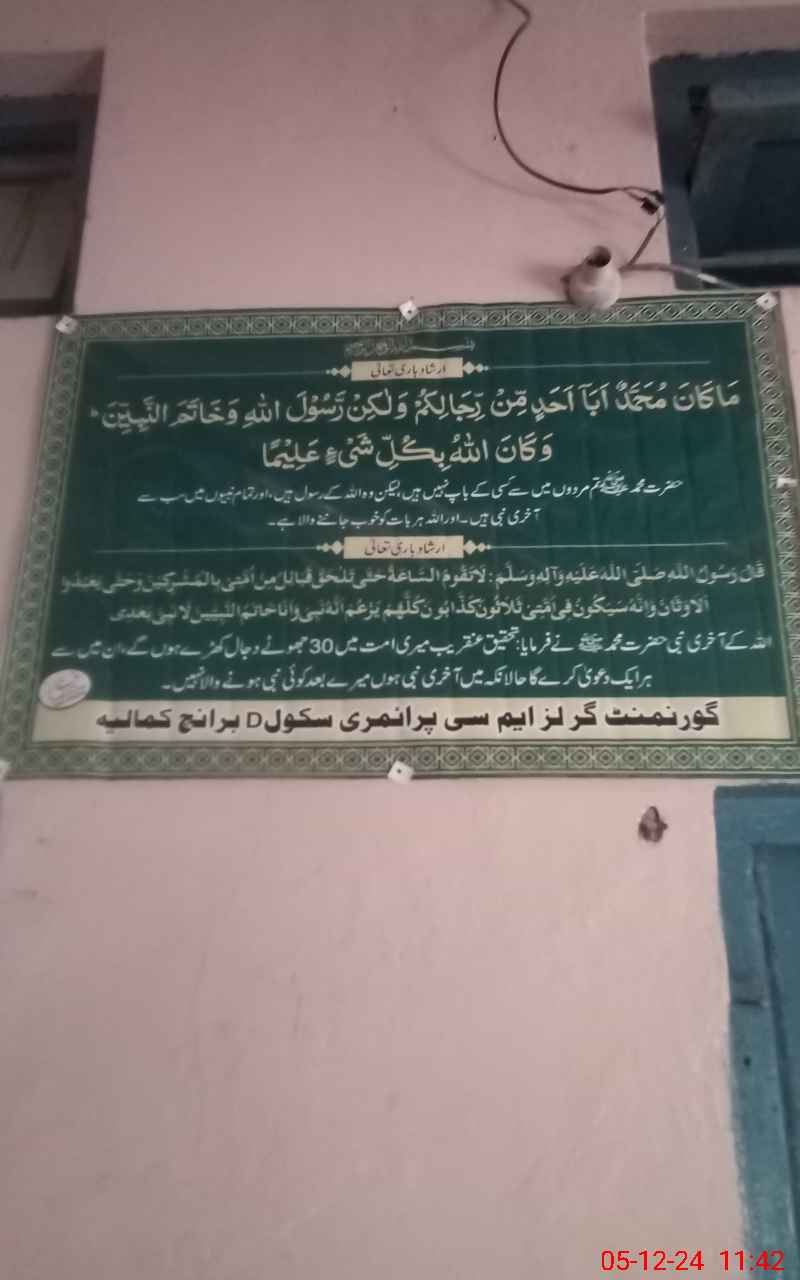 بسم الله الرحمن الرحيم
ارشاد باری تعالیٰ
مَا كَانَ مُحَمَّدٌ اَبَآ اَحَدٍ مِّنْ رِّجَالِكُمْ وَلٰكِنْ رَّسُوْلَ اللهِ وَخَاتَمَ النَّبِيّٖنَ ؕ
وَكَانَ اللهُ بِكُلِّ شَيْءٍ عَلِيْمًا
حضرت محمد ﷺ تم مردوں میں سے کسی کے باپ نہیں ہیں، لیکن وہ اللہ کے رسول ہیں، اور تمام نبیوں میں سب سے
آخری نبی ہیں۔ اور اللہ ہر بات کو خوب جاننے والا ہے۔
ارشاد باری تعالیٰ
قَالَ رَسُوْلُ اللّٰهِ صَلَّى اللّٰهُ عَلَيْهِ وَآلِهٖ وَسَلَّمَ : لَا تَقُوْمُ السَّاعَةُ حَتّٰى تَلْحَقَ قَبَائِلُ مِنْ اُمَّتِىْ بِالْمُشْرِكِيْنَ وَحَتّٰى يَعْبُدُوا
الْاَوْثَانَ وَاِنَّهٗ سَيَكُوْنُ فِىْ اُمَّتِىْ ثَلَاثُوْنَ كَذَّابُوْنَ كُلُّهُمْ يَزْعُمُ اَنَّهٗ نَبِىٌّ وَاَنَا خَاتَمُ النَّبِيّيْنَ لَا نَبِىَّ بَعْدِى
اللہ کے آخری نبی حضرت محمد ﷺ نے فرمایا: تحقیق عنقریب میری امت میں 30 جھوٹے دجال کھڑے ہوں گے، ان میں سے
ہر ایک دعویٰ کرے گا حالانکہ میں آخری نبی ہوں میرے بعد کوئی نبی ہونے والا نہیں۔
گورنمنٹ گرلز ایم سی پرائمری سکول D برانچ کمالیہ
05-12-24 11:42